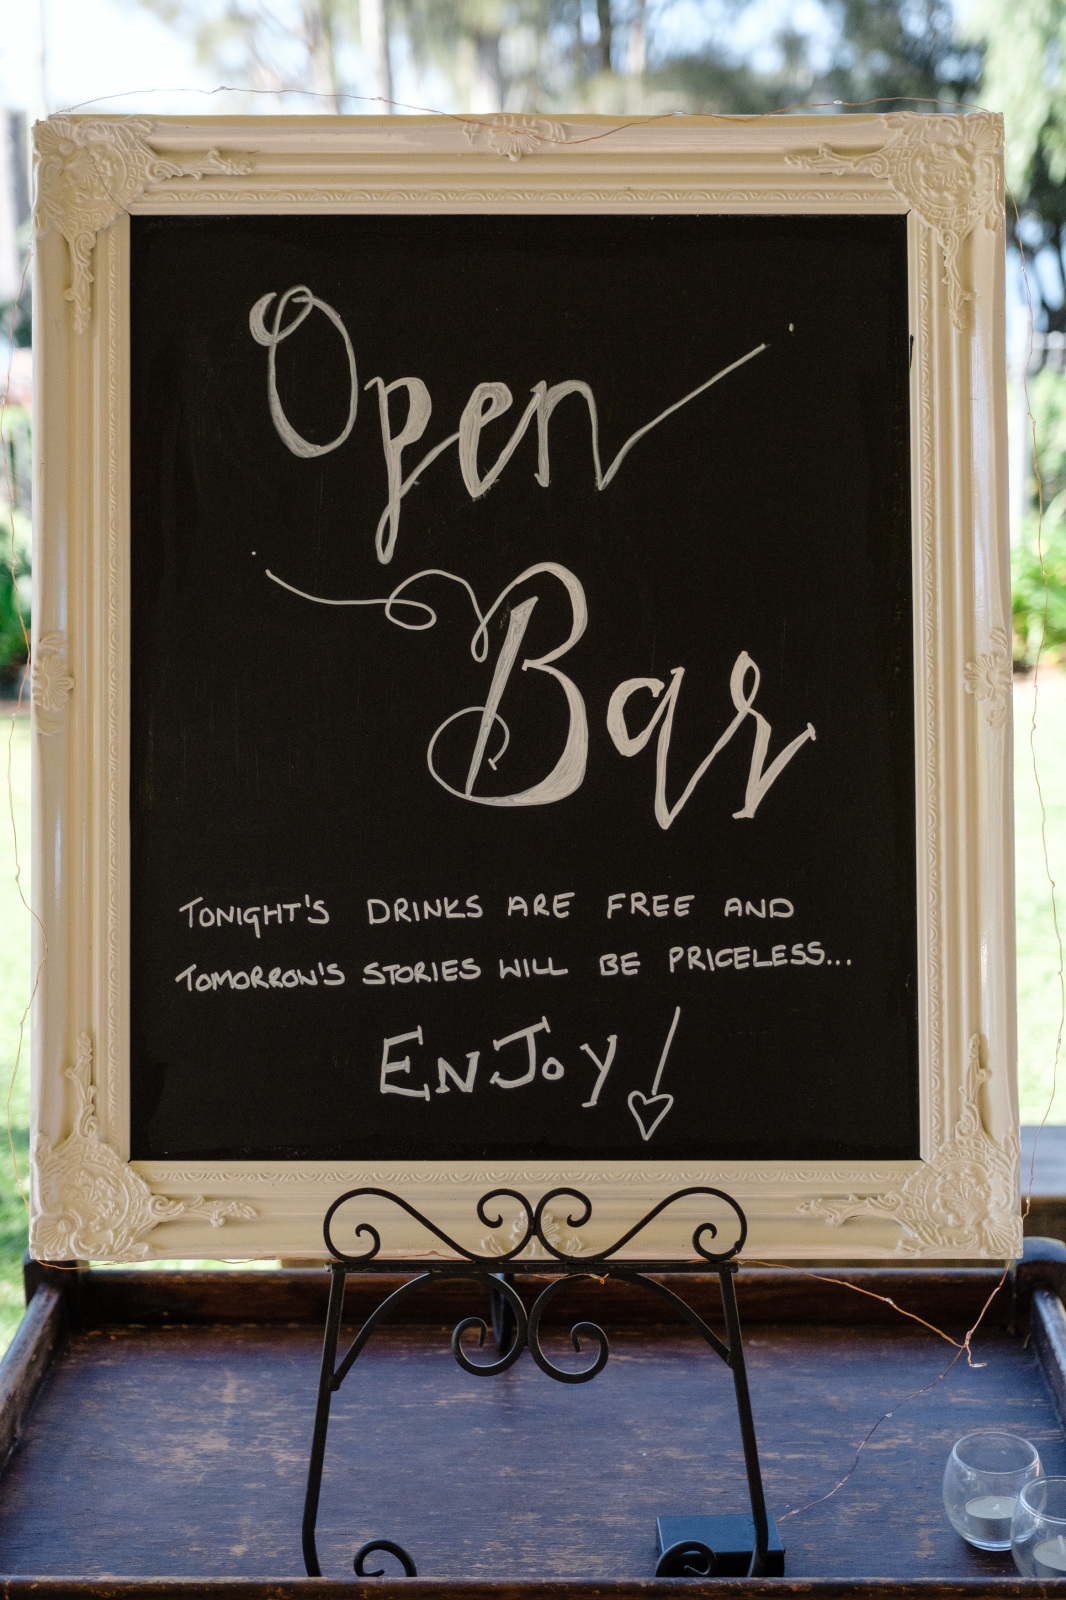 Open
Bar
TONIGHT'S DRINKS ARE FREE AND
TOMORROW'S STORIES WILL BE PRICELESS...
ENJOY!